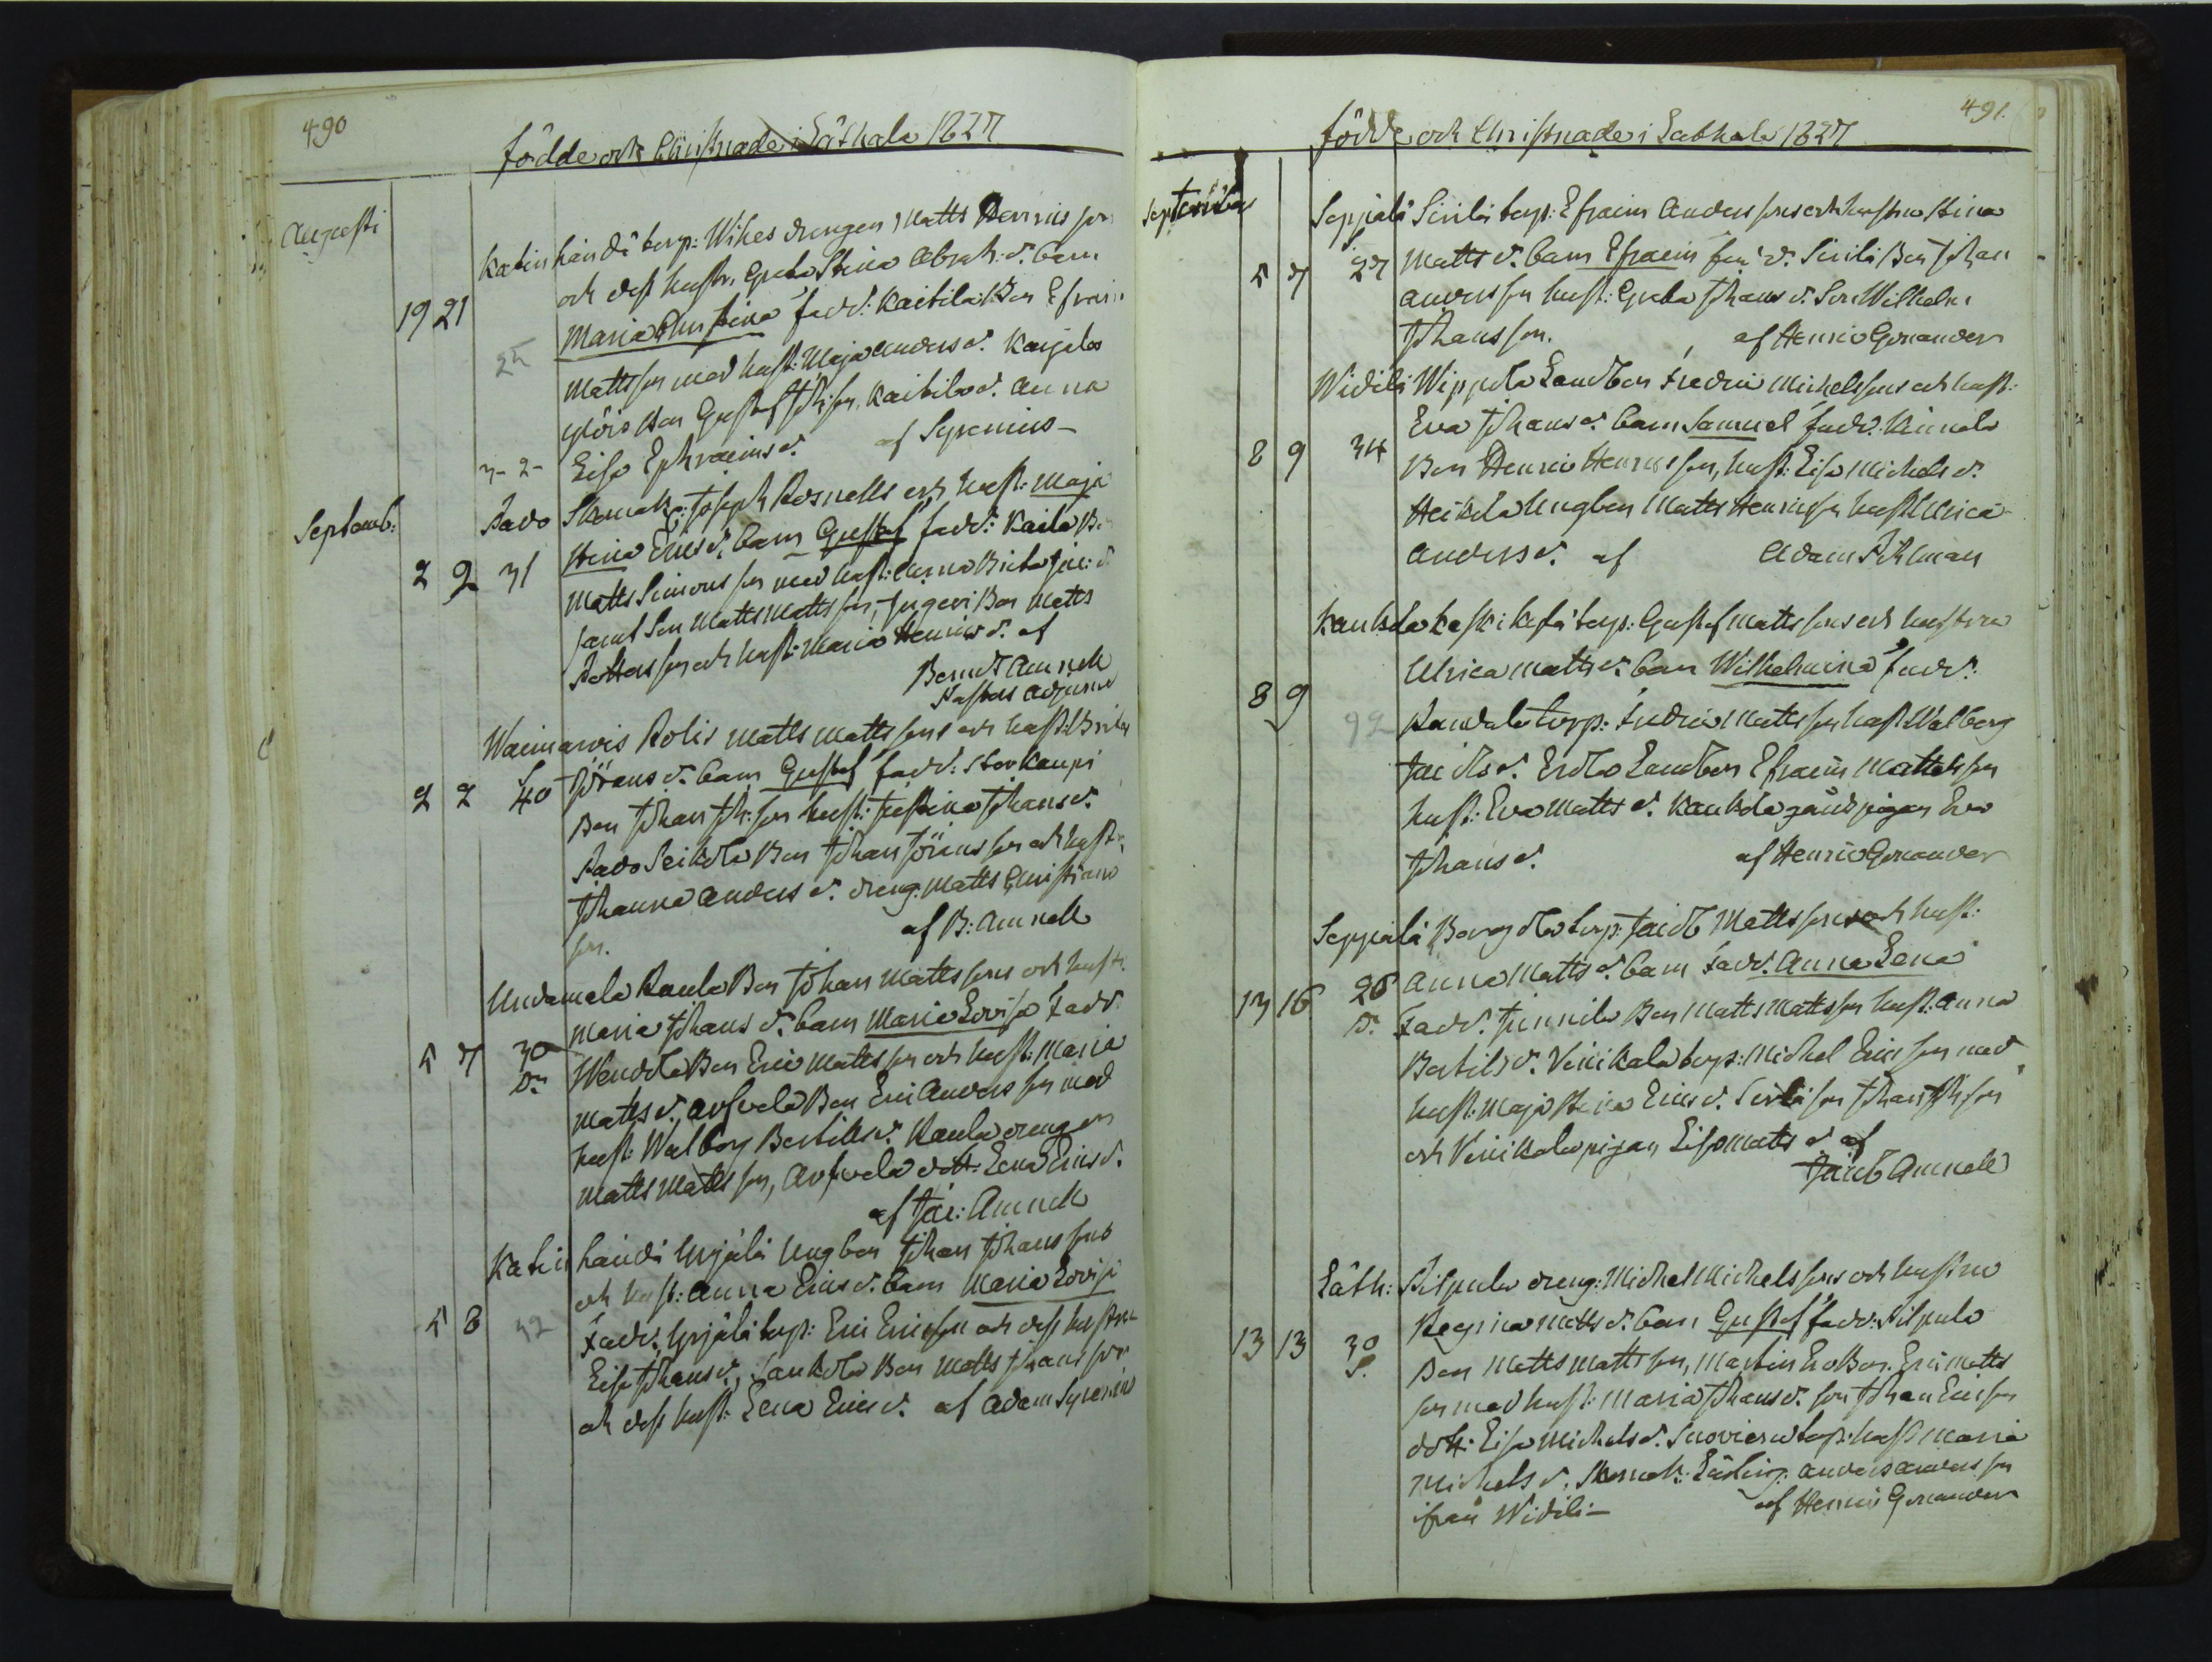 490
födde och Christnade i Låthala 1827
Augusti
Katinhändä torp: Wikes drengen Matts Henrics son
och dess hustr. Greta Stina Abrah. d. barn
19 21 Maria Christina fadd: Kaitila Bon Efraim
25 Mattsson med hust: Maja Anders d. Karjala
Bon Gustaf Joh:son, Kaitila d. Anna
3 - 2 - Lisa Ephraims d. af Syrenius -
Septemb:
Savo Skomak: Joseph Rosnells och hust: Maja
Stina Erics d. barn Gustaf fadd: Kaila B:
2 2 31 Matts Simons son med hust: Anna Brita Jac: d
samt Son Matts Matts son, Bon Matts
son och hust: Maria Henrics d. af
Bernd: Amnell
Pastors adjunct
Wäimarvis Rolis Matts Matts sons och hust: Brita
2 2 40 Jörans d. barn Gustaf fadd: Stor Kaupi
Bon Johan Joh: son hust: Justina Johans d.
Savo Seikola Bon Johan Jörans son och hust:
Johanna Anders d. dreng: Matts Christians
son. af B: Amnell
Undamala Kaula Bon Johan Matts sons och hust:
Maria Johans d. barn Maria Lovisa Fadd
5 7 30 Wendola Bon Eric Matts son och hust: Maria
Dr Matts d. Arfvela Bon Eric Anders son med
hust: Walborg Bertills d. Kaula drengen
Matts Matts son, Arfvela dott: Lena Erics d.
af Jac: Amnell
Katin händä Yrjälä Ungbon Johan Johans sons
och hust: Anna Erics d. barn Maria Lovisa
5 8 32 Fadd. Yrjälä torp: Eric Ericsson och dess hustru
Lisa Johans d., Bon Matts Johans son
och dess hust: Lena Erics d. af Adam Syrenius
491.
födde och Christnade i Lathala 1827
September
Seppälä Sirilä torp: Efraim Anders sons och hustru Stina
5 7 27 Matts d. barn Efraim fad d. Sirilä Bon Johan
Anders son hust: Greta Johans d. Son Wilhelm
Johans son. af Henric Gonander
Widilä Wippola Landbon Fredric Michels sons och hust:
Eva Johans d. barn Samuel fadd: Kinnala
8 9 34 Bon Henric Henrics son, hust: Lisa Michels d.
Heikola Ungbon Matts Henricsson hust Ulrica
Anders d. af Adam Pihlman
Kaukola Keskikylä torp: Gustaf Matts sons och hustru
Ulrica Matts d. barn Wilhelmina fadd:
8 9 92 Randala torp: Fredric Matts son hust Walborg
Jacobs d. Erola Landbon Efraim Mattsson
hust: Eva Matts d. Kaukola gård pigan Eva
Johans d. af Henric Gonander
Seppälä Torp: Jacob Matts sons och hust:
13 16 26 Anna Matts d. barn Fadd. Anna Lena
D. Fadd. Junnila Bon Matts Matts son hust. Anna
Bertils d. Vinikala torp: Michel Erics son med
hust: Maja Stina Erics d. Sirilä son Johan Joh: son
och Vinikala pigan Lisa Matts d af
Jacob Amnell
Låth: Pilpula dreng: Michel Michels sons och hustru
Regina Matts d. barn Gustaf fadd: Pilpula
13 13 30 Bon Matts Matts son, Martin Ero Bon. Eric Matts
S. son med hust: Maria Johans d. son Johan Erics son
dott: Lisa Michels d. torp: hust Maria
Michels d. Skomak: Lärling: Anders Anders son
ifrån Widilä - af Henric Gonander